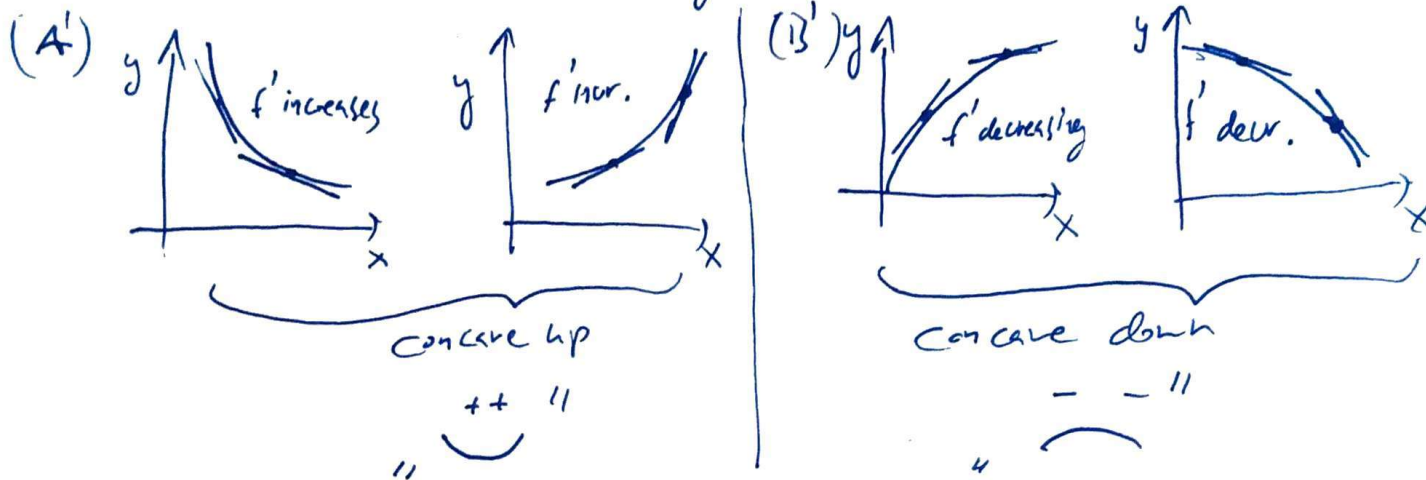 (A')
y
f' increases
x
y
f' incr.
x
Concave up
++ "
"
(B')
y
f' decreasing
x
y
f' decr.
x
Concave down
- - "
"